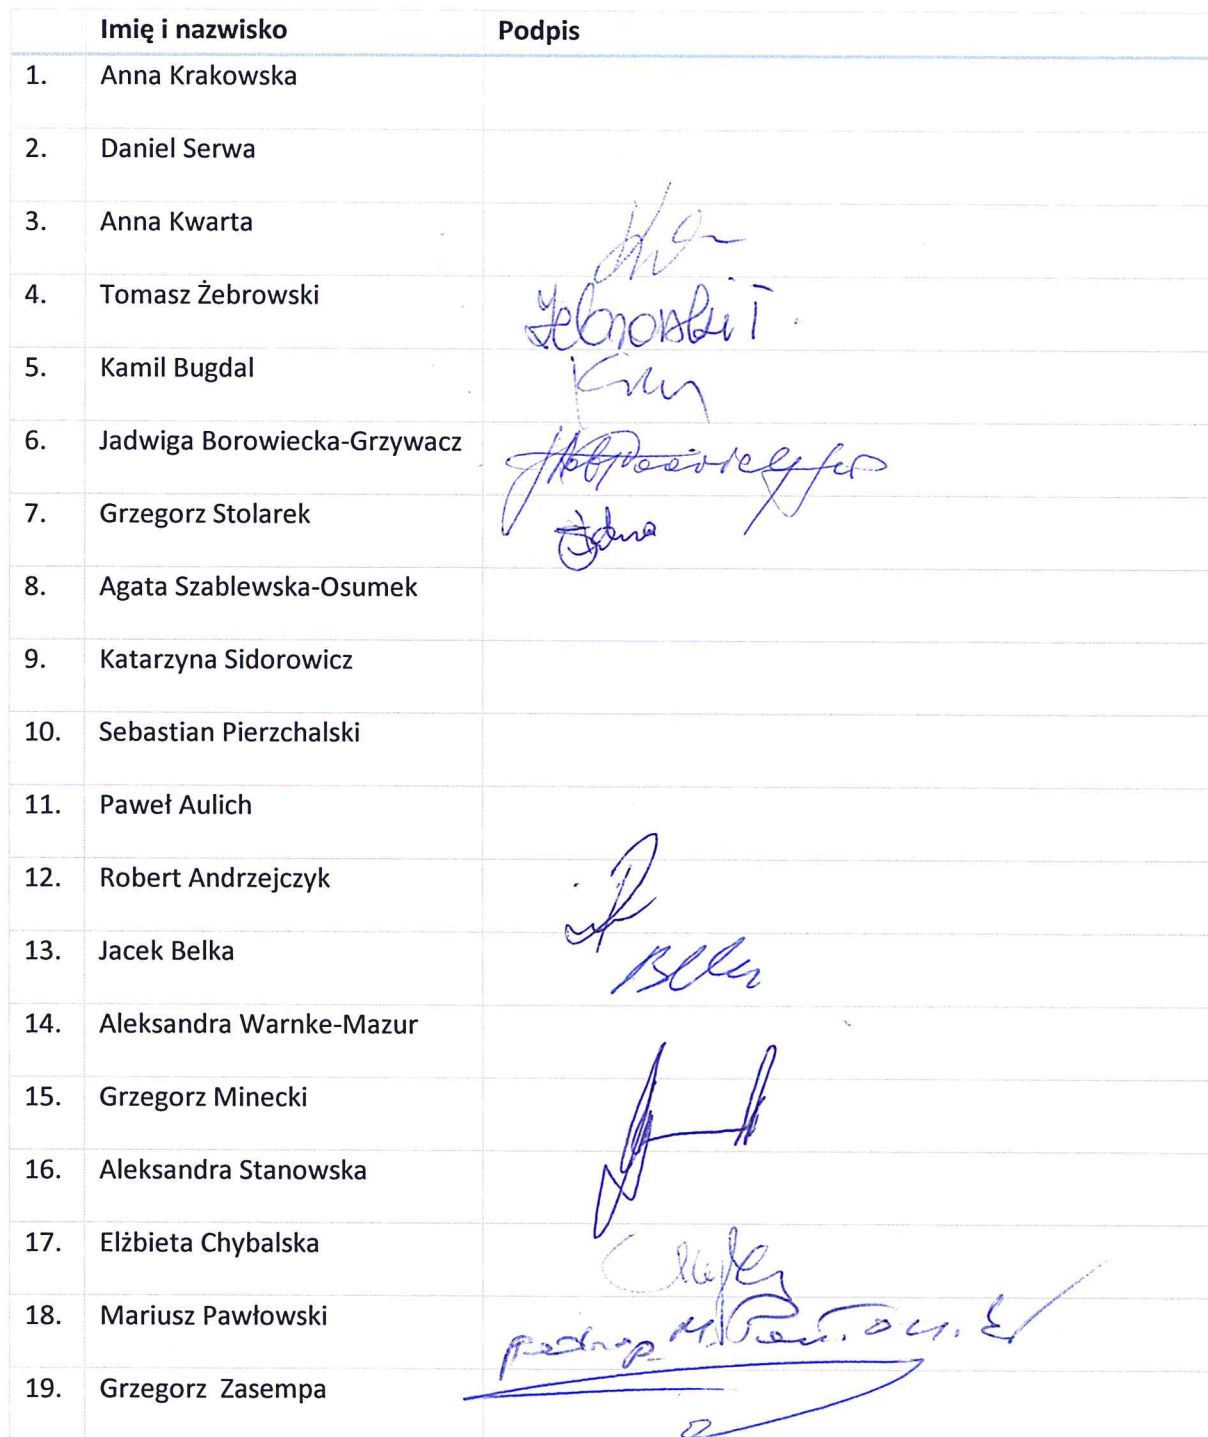 Imię i nazwisko Podpis
1. Anna Krakowska
2. Daniel Serwa
3. Anna Kwarta
4. Tomasz Żebrowski Żebrowski T.
5. Kamil Bugdal
6. Jadwiga Borowiecka-Grzywacz
7. Grzegorz Stolarek
8. Agata Szablewska-Osumek
9. Katarzyna Sidorowicz
10. Sebastian Pierzchalski
11. Paweł Aulich
12. Robert Andrzejczyk
13. Jacek Belka
14. Aleksandra Warnke-Mazur
15. Grzegorz Minecki
16. Aleksandra Stanowska
17. Elżbieta Chybalska
18. Mariusz Pawłowski
19. Grzegorz Zasempa